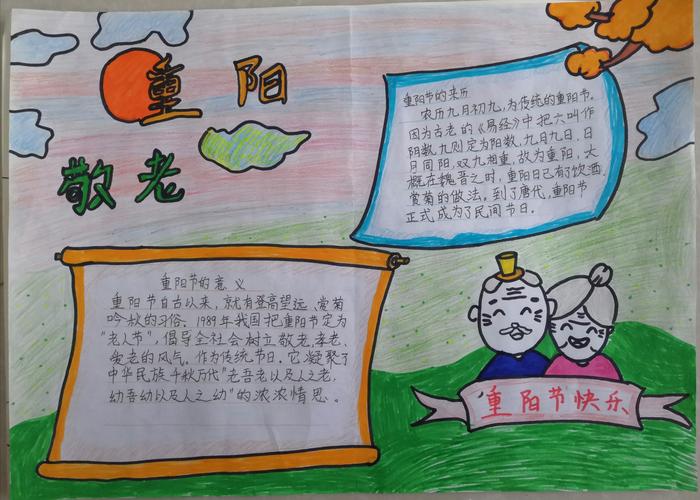 重阳
敬老
重阳节的来历
农历九月初九,为传统的重阳节。
因为古老的《易经》中把六叫作
阴数,九则定为阳数,九月九日,日
月同阳,双九相重,故为重阳,大
概在魏晋之时,重阳日已有饮酒、
赏菊的做法。到了唐代,重阳节
正式成为了民间节日。
重阳节的意义
重阳节自古以来,就有登高望远、赏菊
吟秋的习俗。1989年我国把重阳节定为
“老人节”,倡导全社会树立敬老、孝老、
爱老的风气。作为传统节日。它凝聚了
中华民族千秋万代“老吾老以及人之老,
幼吾幼以及人之幼”的浓浓情思。
重阳节快乐